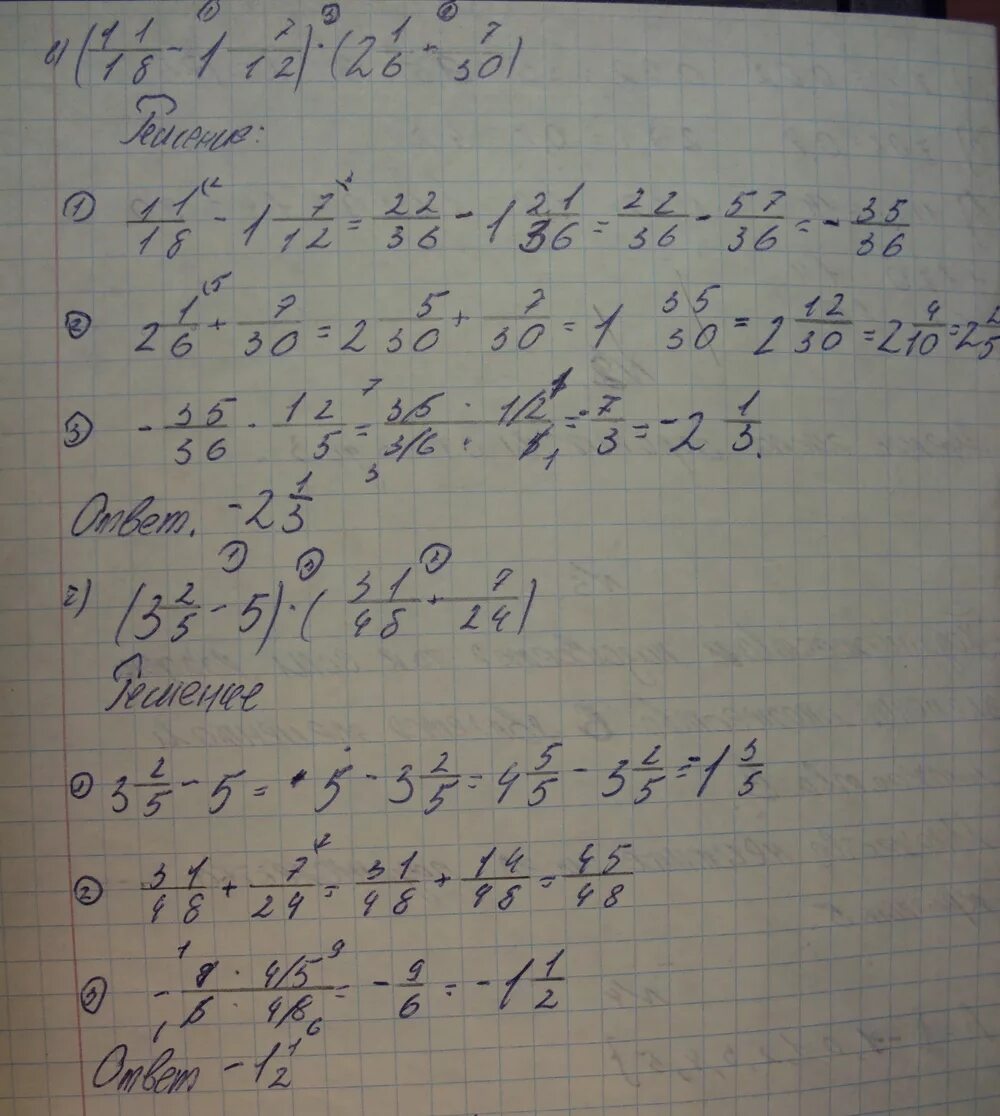 в) (11/18 - 1 7/12) · (2 1/6 + 7/30)
Решение:
① 11/18 - 1 7/12 = 22/36 - 1 21/36 = 22/36 - 57/36 = - 35/36
② 2 1/6 + 7/30 = 2 5/30 + 7/30 = 1 35/30 = 2 12/30 = 2 4/10 = 2 2/5
③ - 35/36 · 12/5 = 35 · 12 / 36 · 5 = - 7/3 = - 2 1/3.
Ответ. - 2 1/3
г) (3 2/5 - 5) · (31/48 + 7/24)
Решение
① 3 2/5 - 5 = 5 - 3 2/5 = 4 5/5 - 3 2/5 = - 1 3/5
② 31/48 + 7/24 = 31/48 + 14/48 = 45/48
③ - 8 · 45 / 5 · 48 = - 9/6 = - 1 1/2
Ответ - 1 1/2